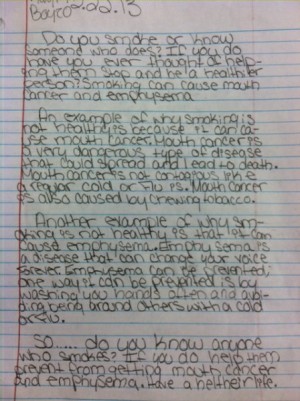 2.02.13
Do you smoke or know
someone who does? If you do
have you ever thought of help-
ing them stop and be a healthier
person? Smoking can cause mouth
canter and emphysema
An example of why smoking is
not healthy is because it can ca-
use mouth cancer. Mouth cancer is
a very dangerous type of disease
that could spread and lead to death.
Mouth cancer is not contagious like
a regular cold or flu is. Mouth cancer
is also caused by chewing tobacco.
Another example of why smo-
king is not healthy is that it can
cause emphysema. Emphysema is
a disease that can change your voice
forever. Emphysema can be prevented,
one way it can be prevented is by
washing you hands often and avoi-
ding being around others with a cold
or flu.
So..... do you know anyone
who smokes? If you do help them
prevent from getting mouth cancer
and emphysema. Have a helthier life.